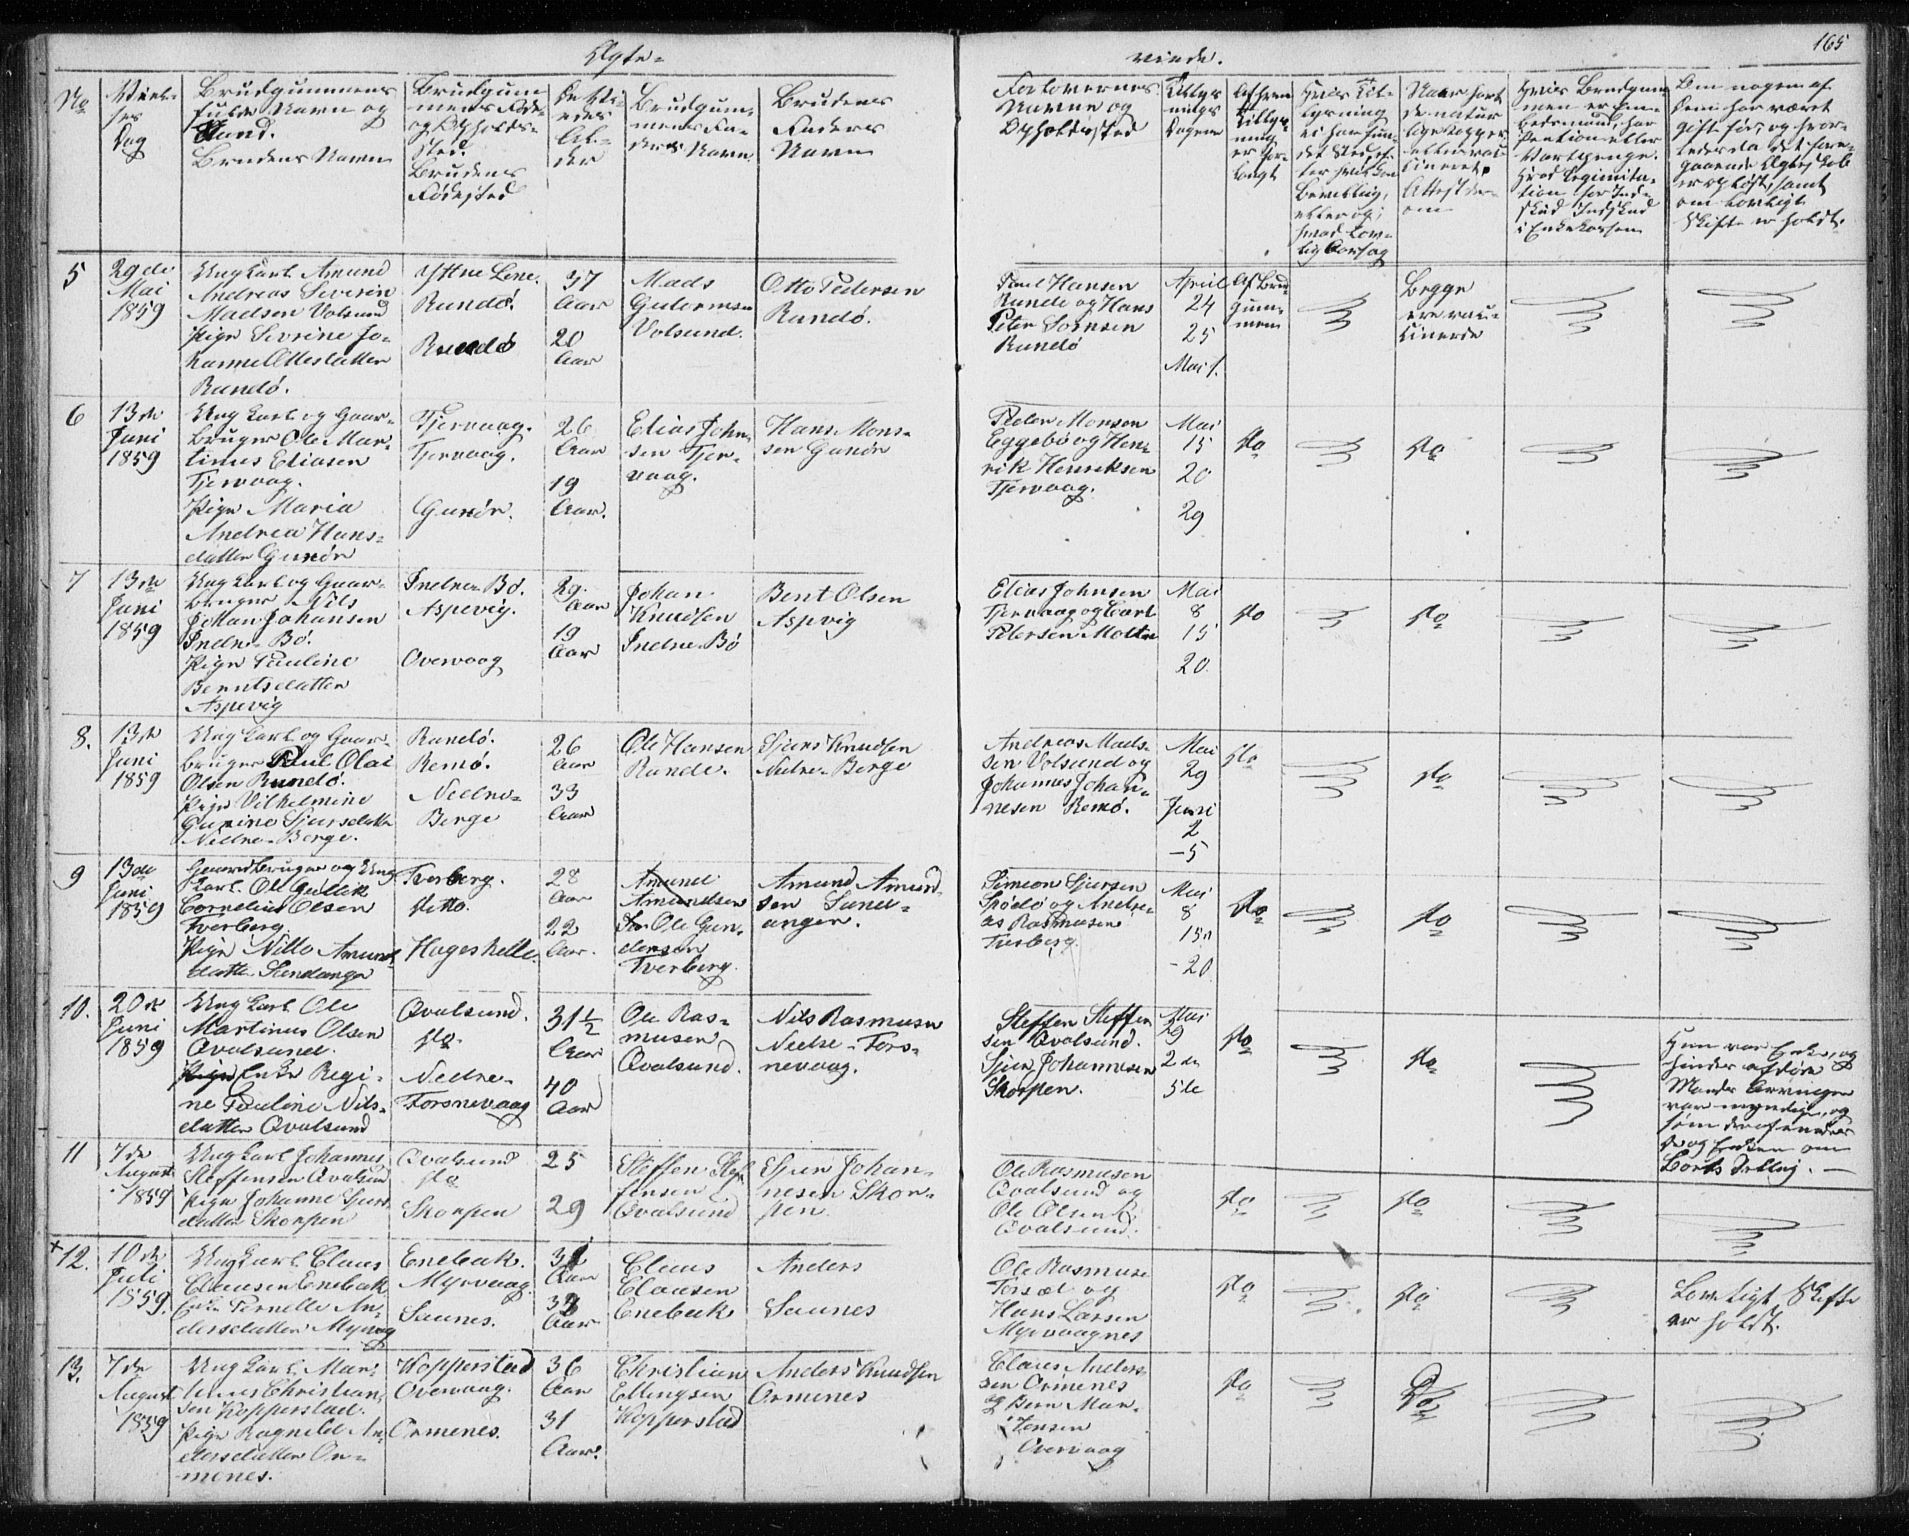 Ægte-
viede.
165
No
Viel-
ses
Dag
Brudgummens
fulde Navn og
Stand.
Brudens Navn
Brudgum-
mens Føde
og Opholds-
sted.
Brudens
Fødested
De Vi-
edes
Al-
der
Brudgum-
mens Fa-
ders Navn
Brudens
Faders
Navn
Forlovernes
Navne og
Opholdssted
Tillys-
nings
Dagene
Af hvem
Tillys-
ning
er for-
langt
Hvis Til-
lysning
ei har fun-
det Sted, ef-
ter hvilken
Bevilling,
eller og,
hvad lov-
lig Aarsag
Naar havt
de natur-
lige Kopper
eller vac-
cineret,
Attest der-
om
Hvis Brudgum-
men er Em-
bedsmand, har
Pension eller
Vartpenge.
Hvad Legimita-
tion for Ind-
skud
i Enkekassen
Om nogen af
dem har været
gift før, og hvor-
ledes da det fore-
gaaende Ægteskab
er opløst, samt
om lovligt
Skifte er holdt.
5
29de
Mai
1859
Ung Karl Amund
Andreas Severin
Madsen Volsund
Pige Sevrine Jo-
hanne Ottesdatter
Rundø.
Rundø.
Rundø
37
Aar
20
Aar
Mads
Gutormsen
Volsund.
Otto Pedersen
Rundø.
Paul Hansen
Runde og Hans
Peter Sørnsen
Rundø
April
24
25
Mai 1.
Af Brud-
gum-
men
Begge
ere vac-
cinerede
6
13de
Juni
1859
Ung Karl og Gaar-
bruger Ole Mar-
tinus Eliasen
Tjervaag.
Pige Maria
Andrea Hans-
datter Gurør
Tjervaag.
Tjervaag.
Gurør.
26
Aar
19
Aar.
Elias John-
sen Tjer-
vaag.
Hans Mons-
sen Gurør
Peder Monsen
Eggebø og Hen-
rik Henriksen
Tjervaag.
Mai
15
20
29
do
do
7
13de
Juni
1859
Ung Karl og Gaar-
bruger Nils
Johan Johansen
Indre-Bø.
Pige Pauline
Berntsdatter
Aspevig
Indre-Bø.
Aspevig.
Overvaag
29.
Aar
19
Aar
Johan
Knudsen
Indre-Bø
Bent Olsen
Aspvig
Elias Johnsen
Tjervaag og Carl
Petersen Moltu
Mai
8
15
20.
do
do
8.
13de
Juni
1859
Ung Karl og Gaar-
bruger Paul Olai
Olsen Rundø.
Pige Vilhelmine
Gurine Sjursdatter
Nedre-Berge.
Rundø.
Remø.
Nedre-
Berge
26
Aar
33
Aar
Ole Hansen
Runde.
Sjurs Knudsen
Nedre-Berge
Andreas Mads-
sen Volsund og
Johannes Johan-
nesen Remø.
Mai
29
Juni
2
-5
do
do
9
13de
Juni
1859
Gaardbruger og Ung
Karl. Ole Gullik
Cornelius Olsen
Tverberg
Pige Nille Amunds-
datter Sundanger
Tverberg.
Ditto.
Hageshelle.
28
Aar
22
Aar.
Amund
Amundsen
Ole Gun-
dersen
Tverberg.
Amund Amund-
sen Sund-
anger.
Simeon Sjursen
Skødø og Andre-
as Rasmusen
Tverberg.
Mai
8
15
-20
do
do
10.
20de
Juni
1859
Ung Karl Ole
Martinus Olsen
Qvalsund.
Pige Enke Regi-
ne Pauline Nils-
datter Qvalsund
Qvalsund.
do.
Nedre-
Torsnevaag
31½
Aar
40
Aar
Ole Ras-
musen
Qvalsund.
Nils Rasmusen
Nedre-Tors-
nevaag.
Steffen Steffen-
sen Qvalsund.
Sjur Johannesen
Skorpen.
Mai
29
2de
5te
do
do
Hun var Enke, og
hendes afdøde
Mands Arvinger
vare myndige, og
11
7de
August
1859
Ung Karl Johannes
Steffensen Qvalsund
Pige Johanne Sjurs-
datter Skorpen
Qvalsund
do
Skorpen
25
29
Steffen Stef-
fensen
Qvalsund
Sjur Johan-
nesen Skor-
pen.
Ole Rasmusen
Qvalsund og
Ole Olsen
Qvalsund.
do
do
+12.
10de
Juli
1859.
Ung Karl Claus
Clausen Enebak
Enke Pernelle An-
dersdatter Myrvaag
Enebak.
Myrvaag
Saunes.
Aar
Aar
Claus
Clausen
Enebak
Anders
Saunes
Ole Rasmuse
Torsæt og
Hans Larsen
Myrvaagnes
do
do
Lovligt Skifte
er holdt.
13.
7de
August
1859
Ung Karl Mar-
tinus Christian-
sen Kopperstad.
Pige Ragnild An-
dersdatter Or-
menes.
Kopperstad
Overvaag.
Ormenes.
36
Aar
31
Aar.
Christian
Ellingsen
Kopperstad
Anders Knudsen
Ormenes
Claus Anders-
sen Ormenes
og Bern Mar-
Jensen
Overvaag
do
Do